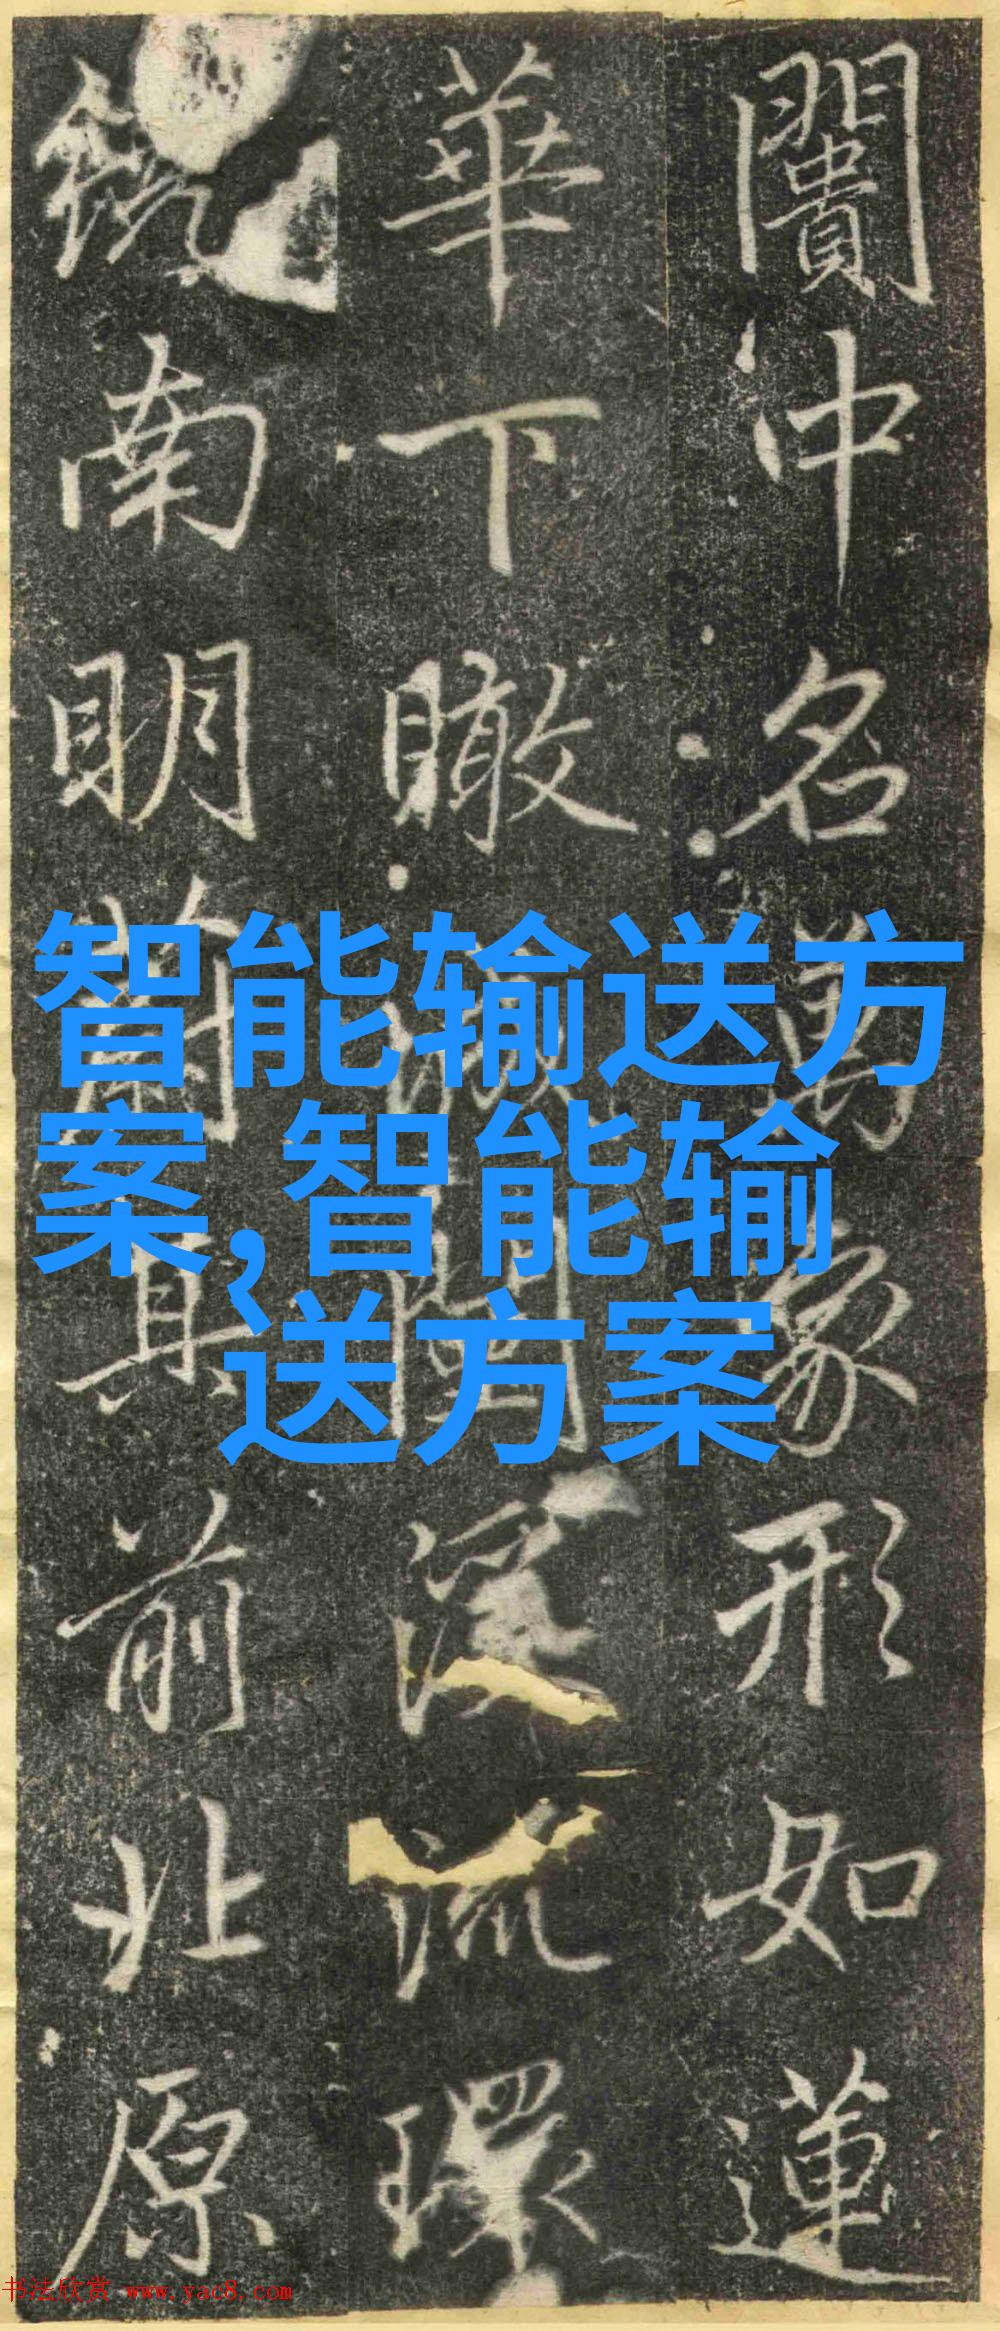 闠冲名萬象形如蓮
華下瞰流環
南明其前北原
智能输送方
案,智能输
送方案
书法欣赏 www.yac8.com